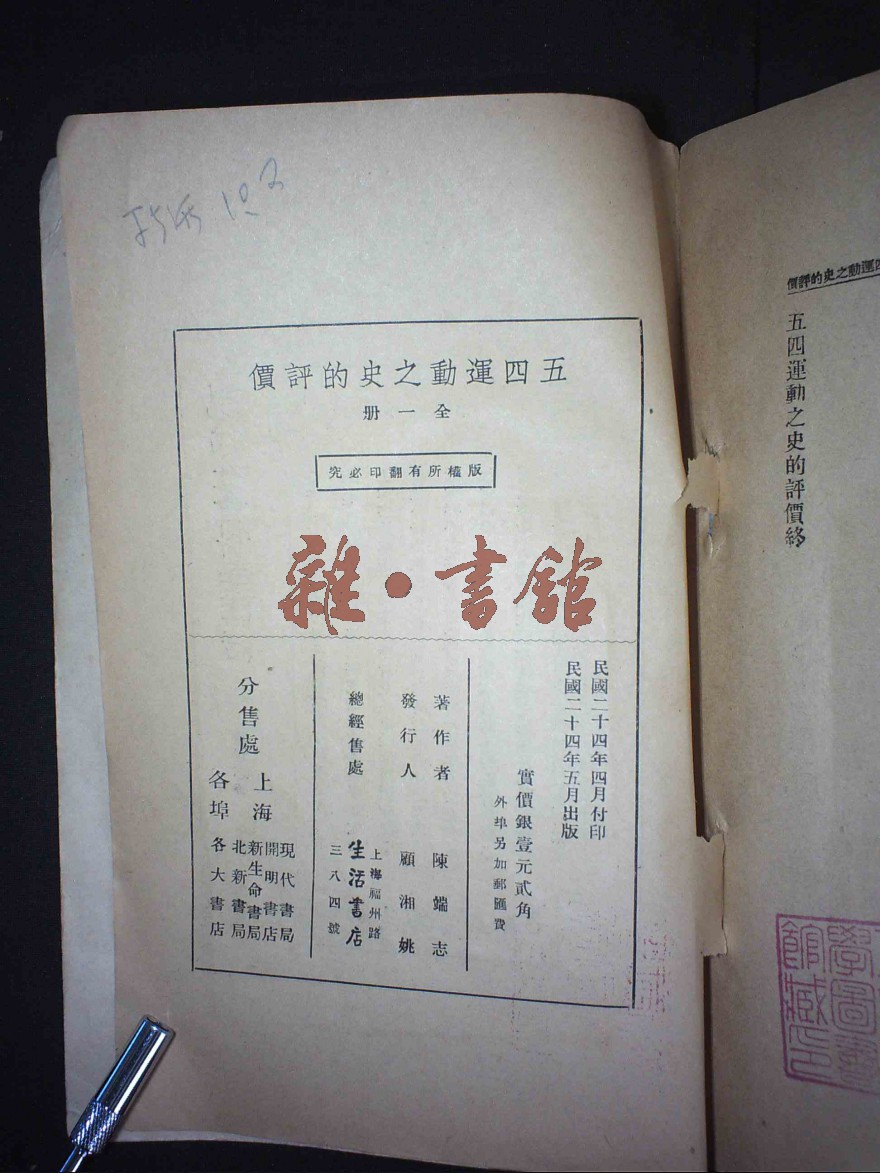 價評的史之動運
五四運動之史的評價終
五四運動之史的評價
全一册
版權所有翻印必究
雜·書館
民國二十四年四月付印
民國二十四年五月出版
實價銀壹元貳角
外埠另加郵匯費
著作者 陳端志
發行人 顧湘姚
總經售處
上海福州路
生活書店
三八四號
分售處
上海
現代書局
開明書店
新生命書局
北新書局
各埠
各大書店
學圖書
館藏